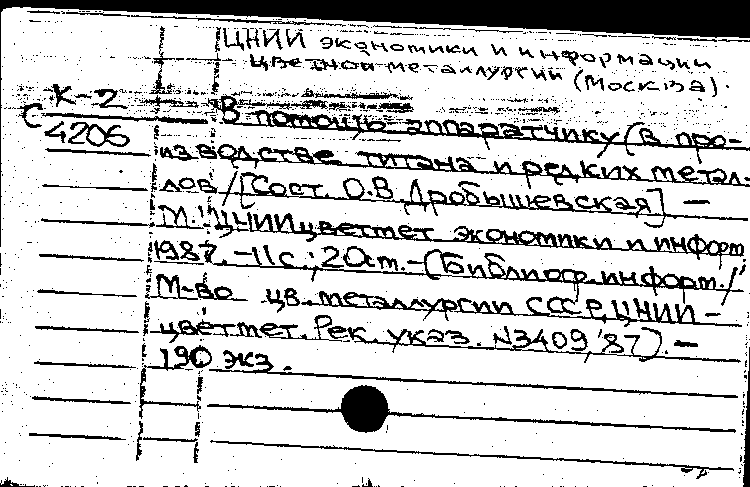 ЦНИИ экономики и информации
цветной металлургии (Москва).
К-2
С 4206
В помощь аппаратчику (в про-
изводстве титана и редких метал-
лов / [Сост. О.В. Дробышевская] —
М.: ЦНИИцветмет экономики и информ
1987. – 11 с.; 20 см. – (Библиогр. информ. /
М-во цв. металлургии СССР, ЦНИИ –
цветмет. Рек. указ. N3409, '87). —
190 экз.